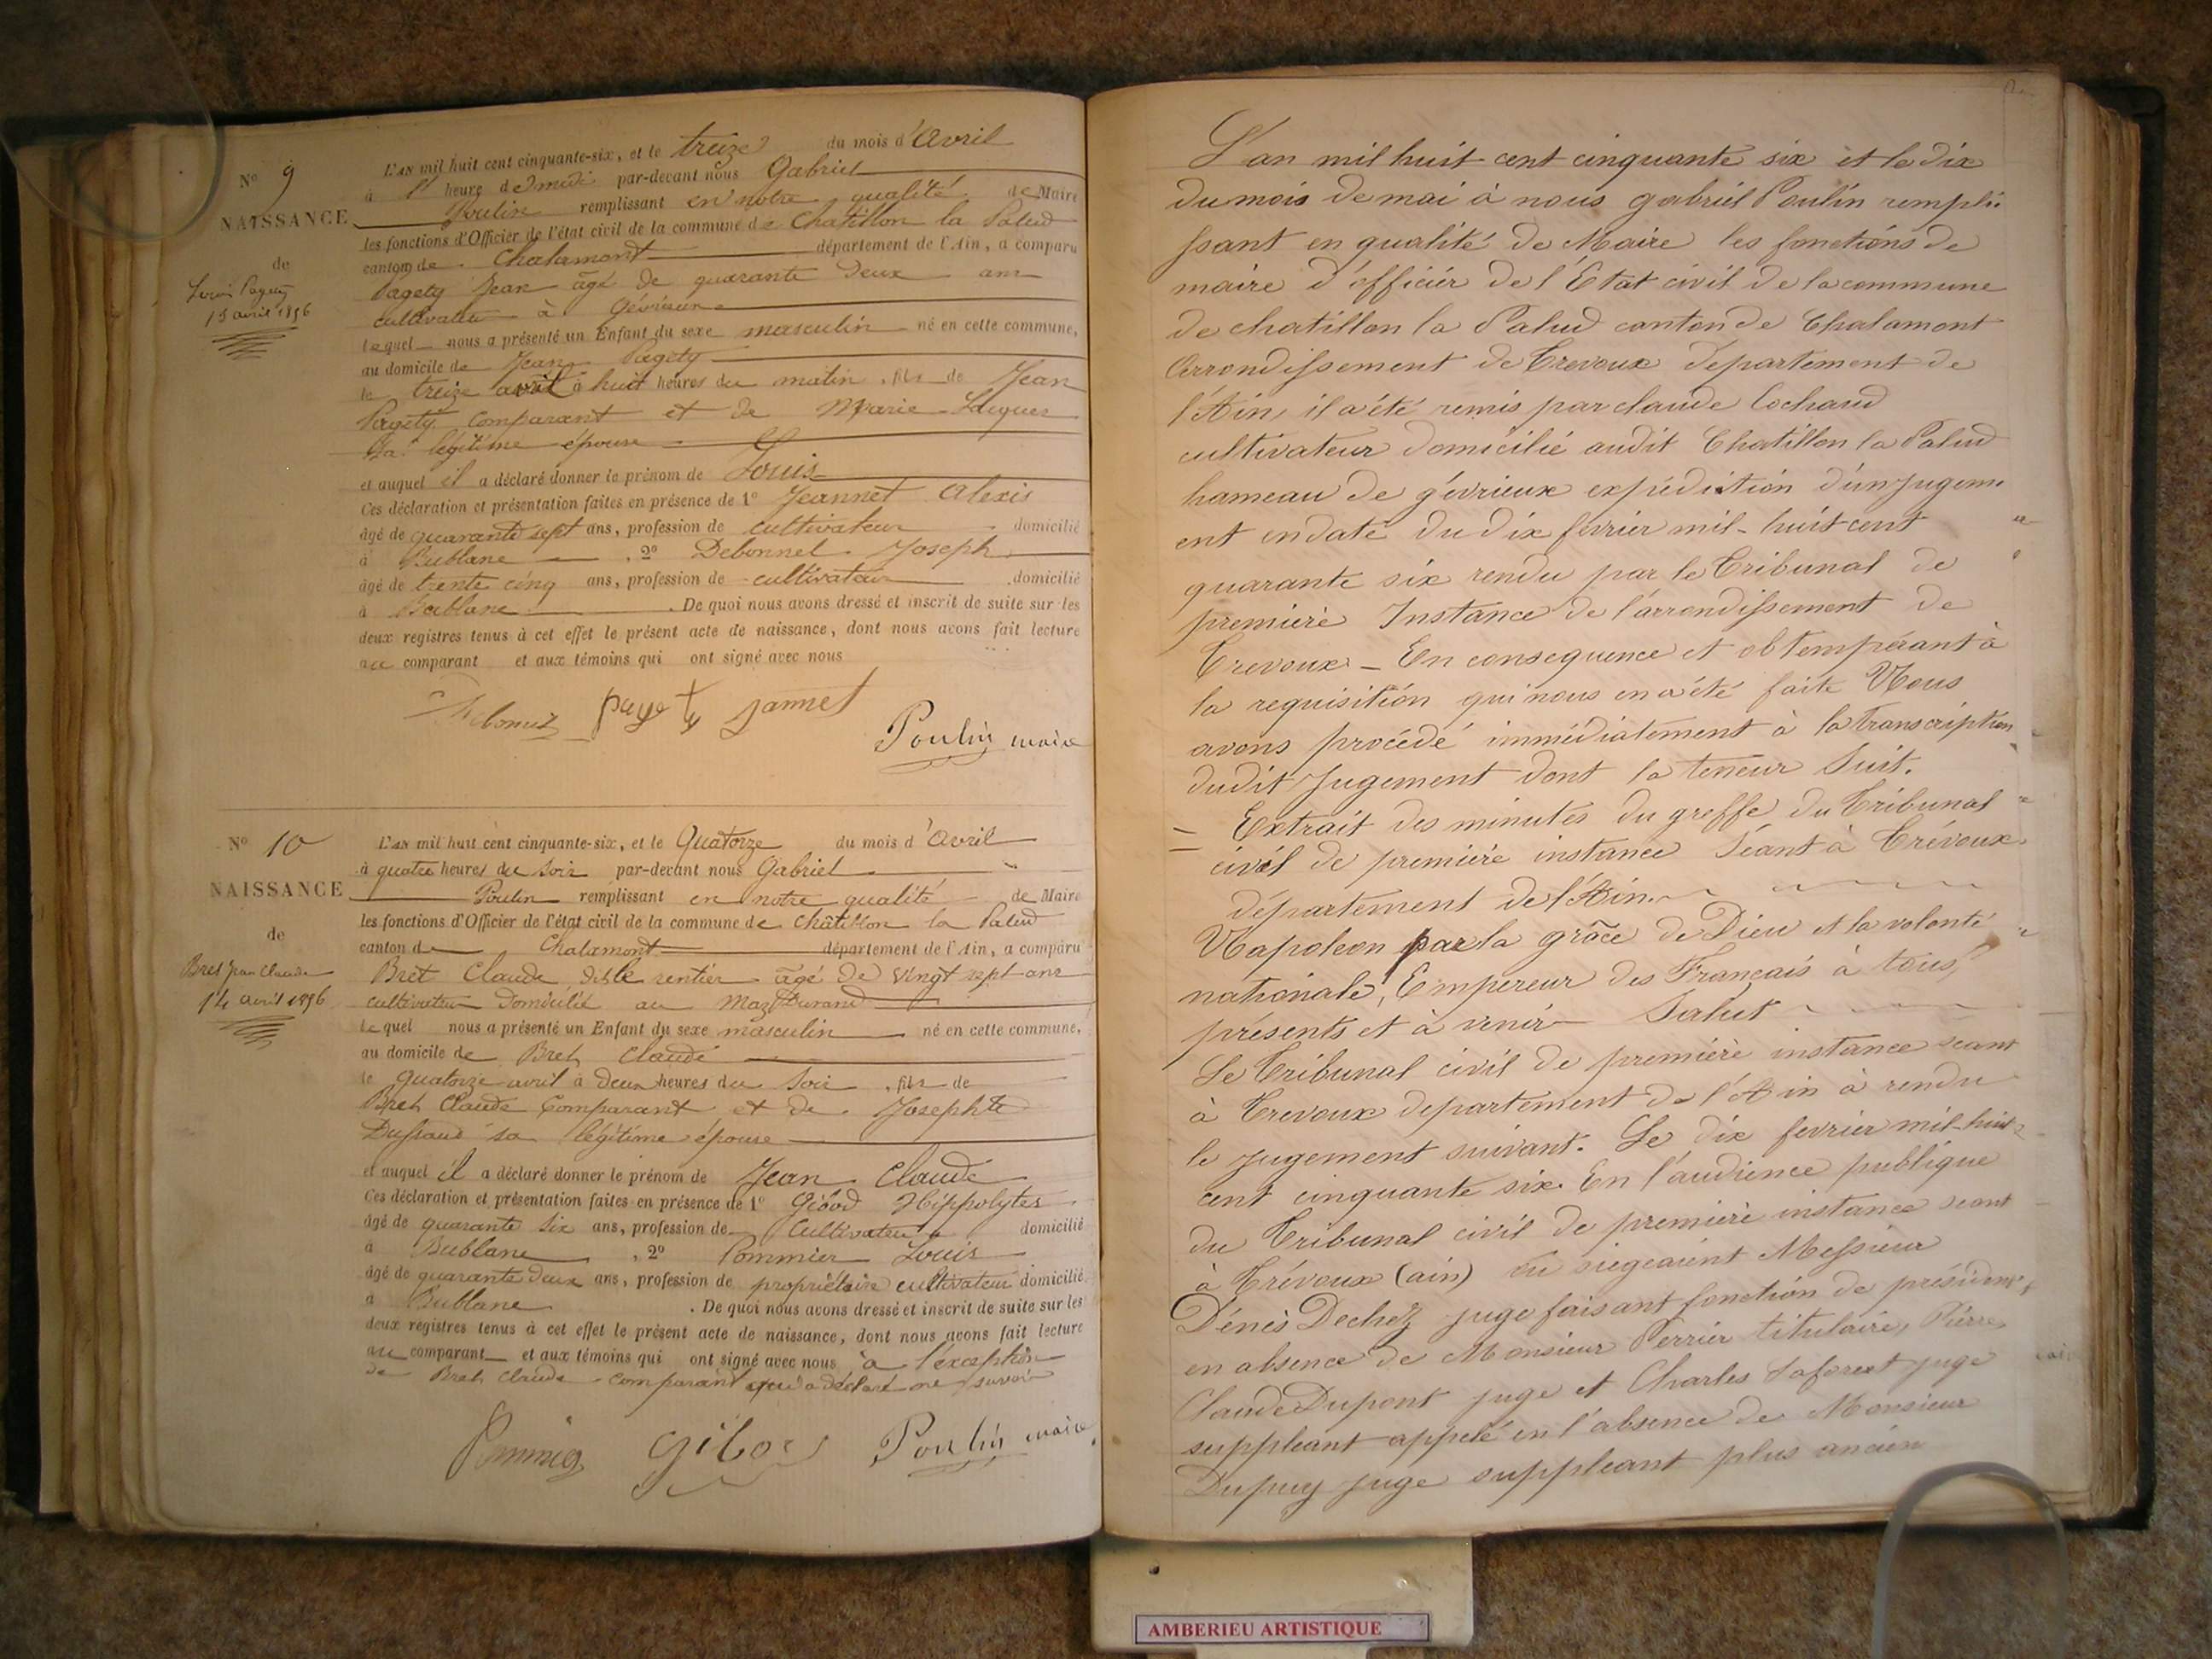 N° 9
NAISSANCE
de
Louis Pagety
13 avril 1856
L'AN mil huit cent cinquante-six, et le treize du mois d'Avril
à l' heure de midi par-devant nous Gabriel
Poulin remplissant en notre qualité de Maire
les fonctions d'Officier de l'état civil de la commune de Chatillon la Palud
canton de Chalamont département de l'Ain, a comparu
Pagety Jean âgé de quarante deux ans
cultivateur à Gévrieux
lequel nous a présenté un Enfant du sexe masculin né en cette commune,
au domicile de Jean Pagety
le treize avril à huit heures du matin, fils de Jean
Pagety comparant et de Marie Jacques
Sa légitime épouse
et auquel il a déclaré donner le prénom de Louis
Ces déclaration et présentation faites en présence de 1° Jeannet Alexis
âgé de quarante sept ans, profession de cultivateur domicilié
à Bublane , 2° Debonnel Joseph
âgé de trente cinq ans, profession de cultivateur , domicilié
à Bublane . De quoi nous avons dressé et inscrit de suite sur les
deux registres tenus à cet effet le présent acte de naissance, dont nous avons fait lecture
au comparant et aux témoins qui ont signé avec nous
payety jannet
Poulin maire
N° 10
NAISSANCE
de
Bret Jean Claude
14 avril 1856
L'AN mil huit cent cinquante-six, et le Quatorze du mois d'Avril
à quatre heures du soir par-devant nous Gabriel
Poulin remplissant en notre qualité de Maire
les fonctions d'Officier de l'état civil de la commune de Châtillon la Palud
canton de Chalamont département de l'Ain, a comparu
Bret Claude dit le rentier âgé de vingt sept ans
cultivateur domicilié au Maz Durand
lequel nous a présenté un Enfant du sexe masculin né en cette commune,
au domicile de Bret Claude
le quatorze avril à deux heures du soir , fils de
Bret Claude Comparant et de Josephte
Dussaud sa légitime épouse
et auquel il a déclaré donner le prénom de Jean Claude
Ces déclaration et présentation faites en présence de 1° Hippolyte
âgé de quarante six ans, profession de Cultivateur domicilié
à Bublane , 2° Pommier Louis
âgé de quarante deux ans, profession de propriétaire cultivateur domicilié
à Bublane . De quoi nous avons dressé et inscrit de suite sur les
deux registres tenus à cet effet le présent acte de naissance, dont nous avons fait lecture
au comparant et aux témoins qui ont signé avec nous à l'exception
de Bret Claude comparant qui a déclaré ne savoir
Poulin maire
L'an mil huit cent cinquante six et le dix
du mois de mai à nous gabriel Poulin rempli
ssant en qualité de Maire les fonctions de
maire d'officier de l'Etat civil de la commune
de chatillon la Palud canton de Chalamont
Arrondissement de Trevoux departement de
l'Ain, il a été remis par claude Cochaud
cultivateur domicilié audit Chatillon la Palud
hameau de gévrieux expédition d'un jugem
ent en date du dix fevrier mil-huit cent
quarante six rendu par le Tribunal de
première Instance de l'arrondissement de
Trevoux - En consequence et obtempérant à
la requisition qui nous en a été faite Nous
avons procédé immédiatement à la transcription
dudit Jugement dont la teneur Suit.
= Extrait des minutes du greffe du Tribunal
civil de première instance Séant à Trévoux
département de l'Ain.
Napoleon par la grâce de Dieu et la volonté
nationale, Empereur des Français à tous
présents et à venir Salut
Le Tribunal civil de première instance seant
à Trevoux departement de l'Ain à rendu
le jugement suivant. Le dix fevrier mil-huit
cent cinquante six. En l'audience publique
du Tribunal civil de première instance seant
à Trévoux (ain) ou siegeaient Messieur
Dénis Dechez juge faisant fonction de président
en absence de Monsieur Perrier titulaire, Pierre
Claude Dupont juge et Charles Laforest juge
suppleant appelé en l'absence de Monsieur
Dupuy juge suppleant plus ancien
AMBERIEU ARTISTIQUE